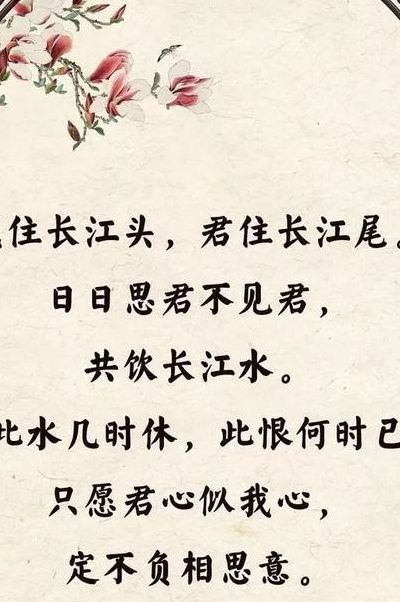 住长江头，君住长江尾。
日日思君不见君，
共饮长江水。
此水几时休，此恨何时已
只愿君心似我心，
定不负相思意。